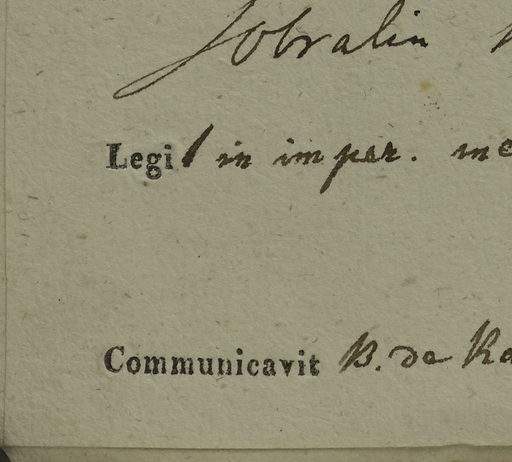 Sobralin
Legit in imper. me
Communicavit B. de Ra